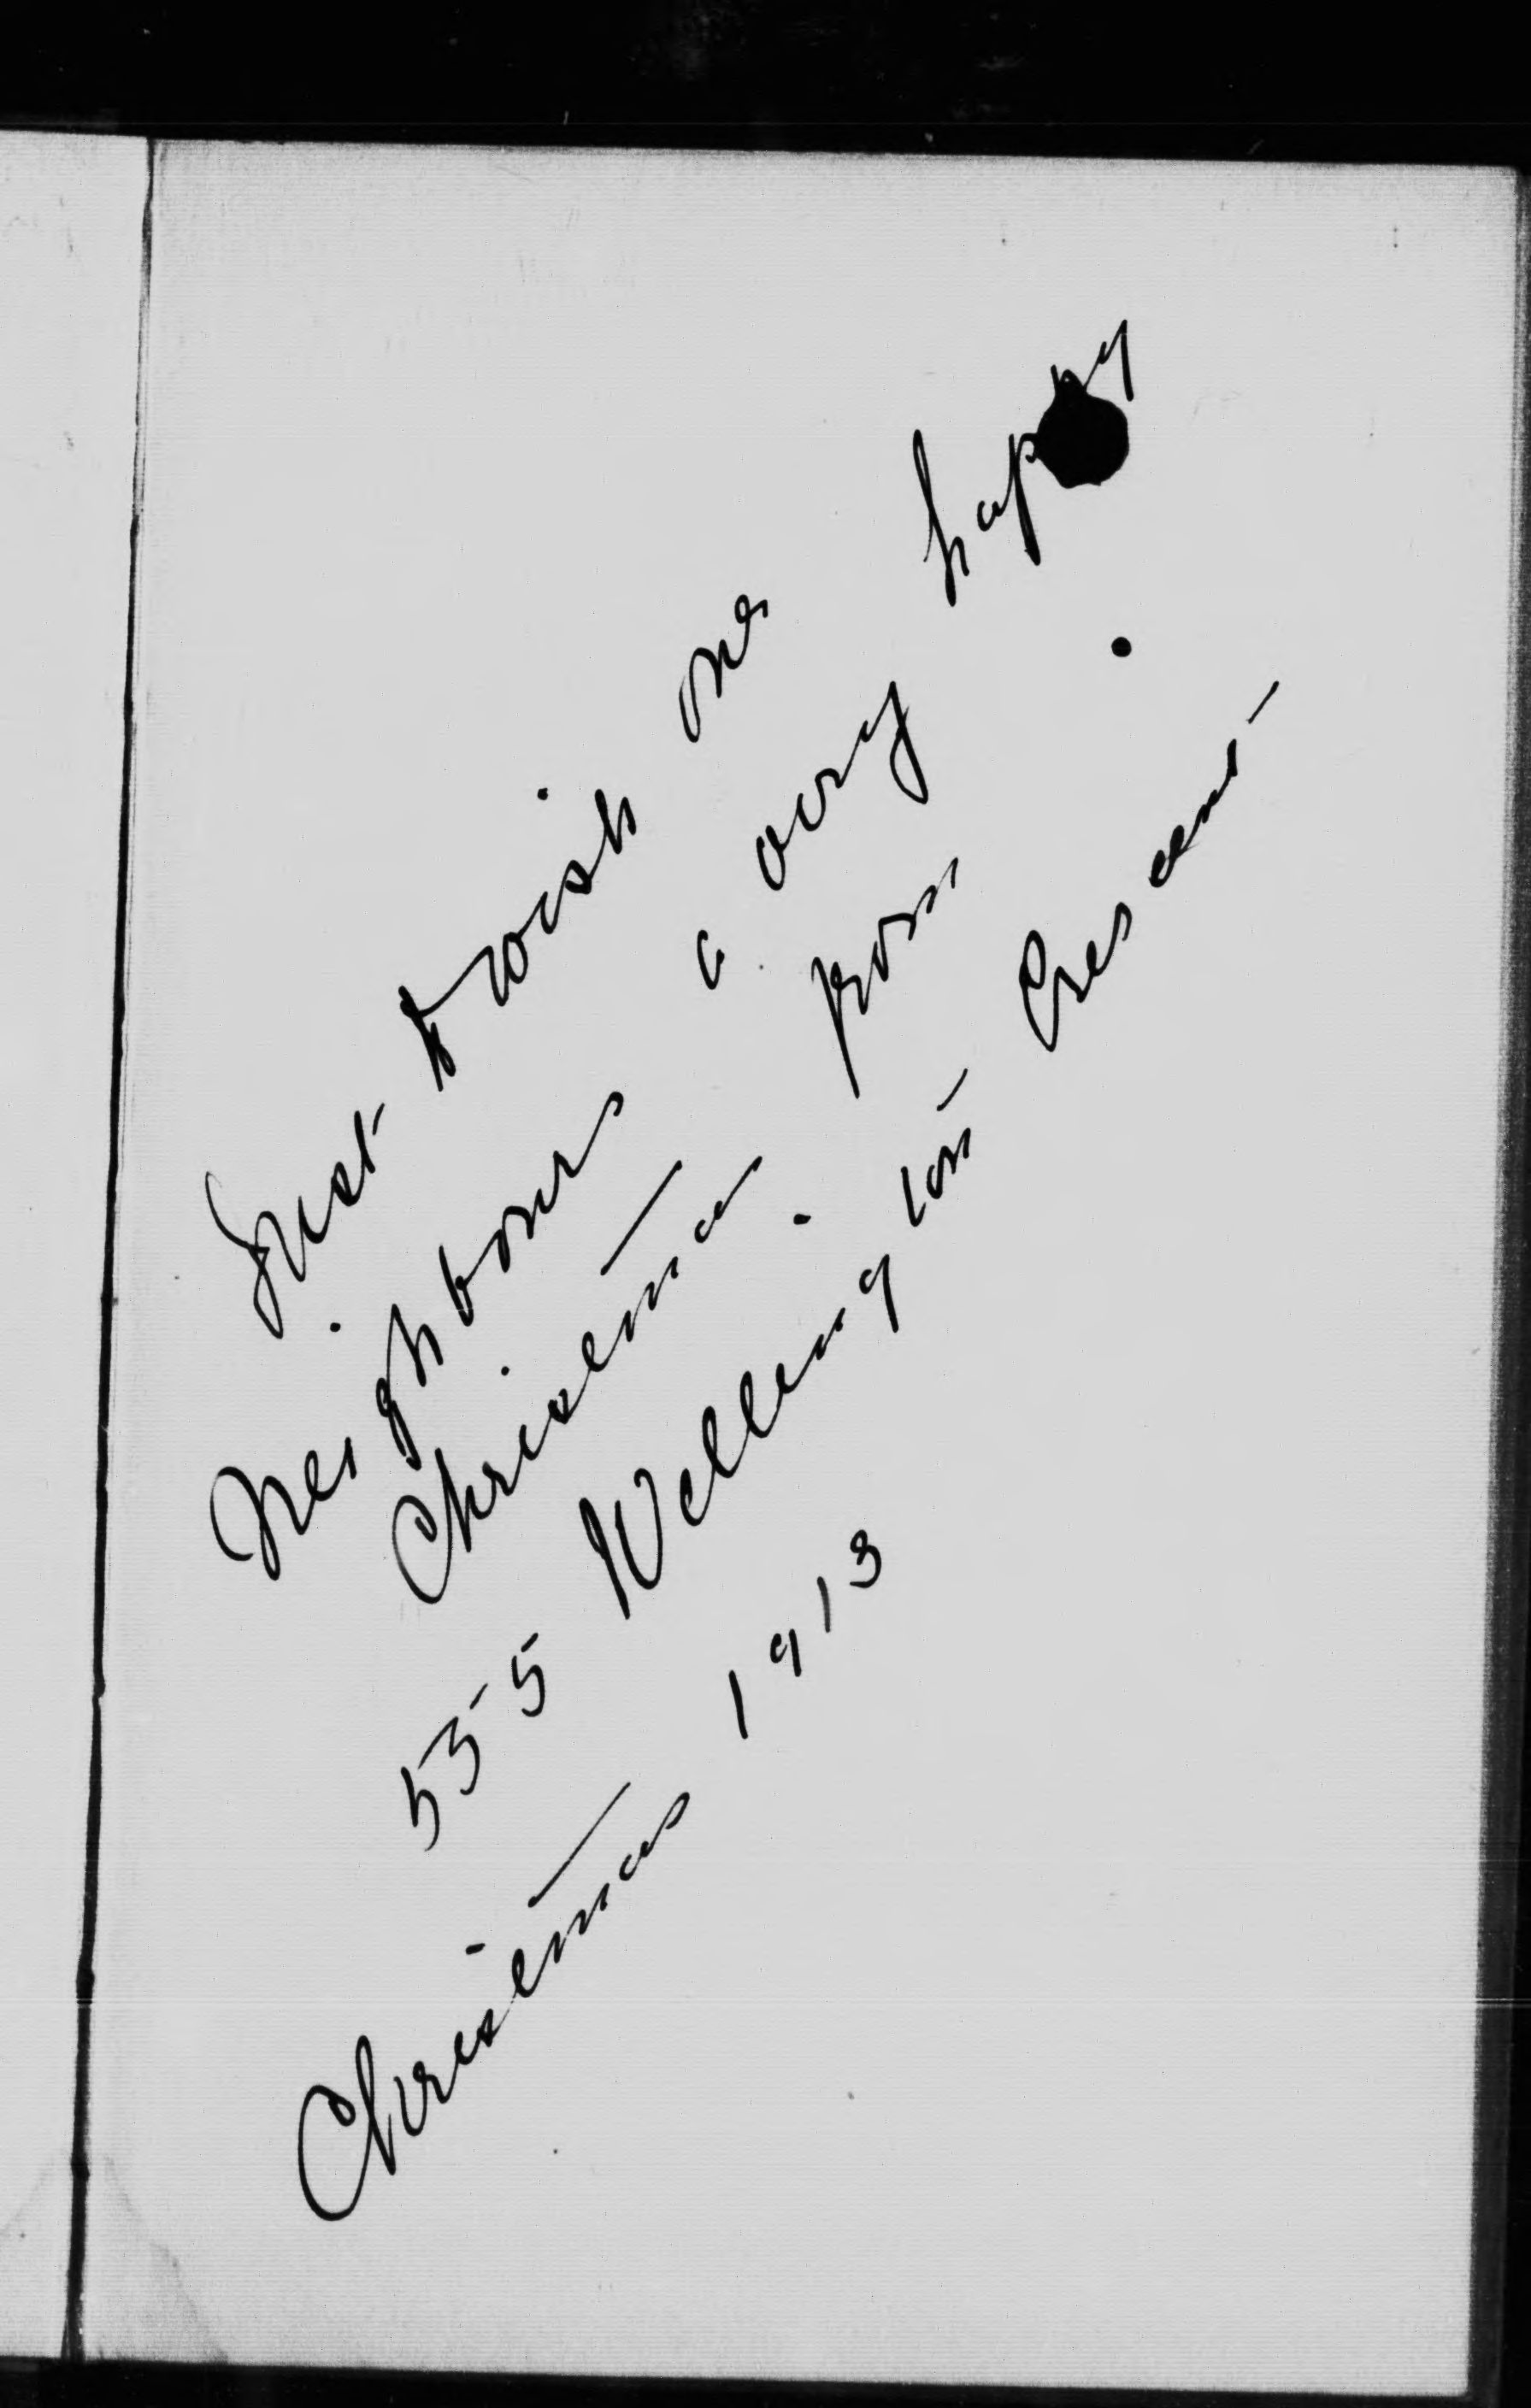 Just to wish our
Neighbours a very happy
Christmas from
555 Wellington Crescent
Christmas 1913